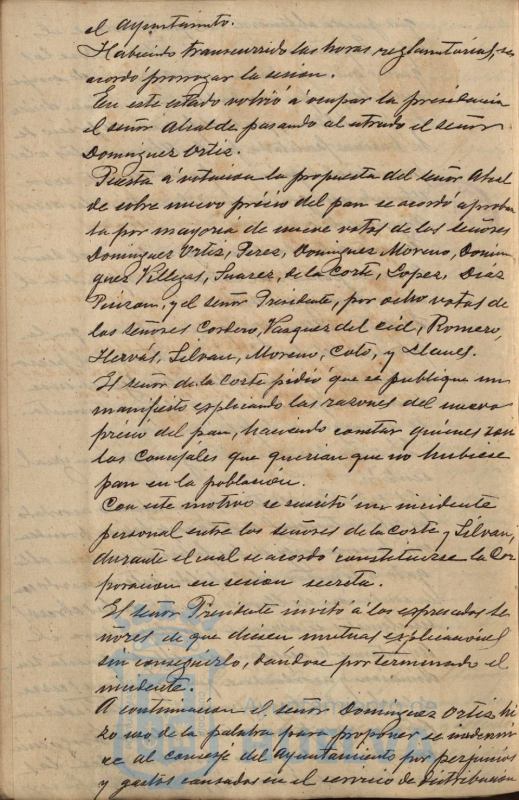 el Ayuntamiento.
Habiendo transcurrido las horas reglamentarias, se
acordo prorrogar la sesion.
En este estado volvió á ocupar la presidencia
el señor Alcalde, pasando al estrado el señor
Dominguez Ortiz.
Puesta á votacion la propuesta del señor Alcal
de sobre nuevo précio del pan se acordó aprobar
la por mayoría de nueve votos de los señores
Dominguez Ortiz, Perez, Dominguez Moreno, Domin
guez Villegas, Suarez, de la Corte, Lopez, Diaz
Pinzon, y el señor Presidente, por ocho votos de
los señores Cordero, Vazquez del Cid, Romero,
Hervás, Silvan, Moreno, Coto, y Llanes.
El señor de la Corte pidió que se publique un
manifiesto esplicando las razones del nuevo
precio del pan, haciendo constar quiénes son
los Concejales que querian que no hubiese
pan en la población.
Con este motivo se suscitó un incidente
personal entre los señores de la Corte y Silvan,
durante el cual se acordó constituirse la Cor
poracion en sesion secreta.
El señor Presidente invitó á los expresados se
ñores de que diesen mutuas esplicaciones
sin conseguirlo, dándose por terminado el
incidente.
A continuacion el señor Dominguez Ortiz hi
zo uso de la palabra para proponer se indemni
ce al conserje del Ayuntamiento por perjuicios
y gastos causados en el servicio de distribucion